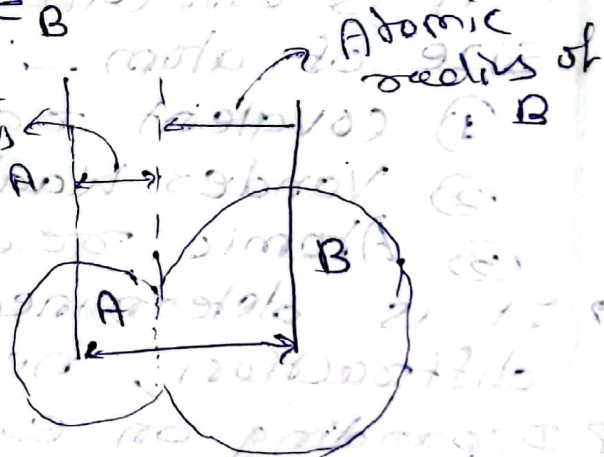 = B
Atomic
radius of
B
A
A
B